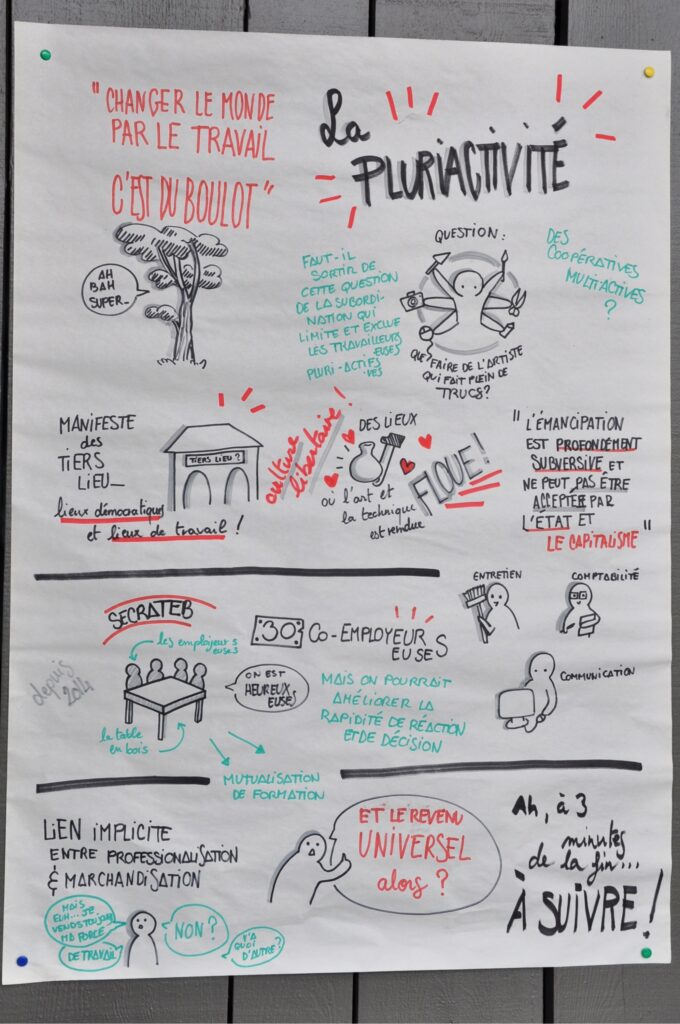 "CHANGER LE MONDE
PAR LE TRAVAIL
C'EST DU BOULOT"
La
PLURIACTIVITÉ
AH
BAH
SUPER_
FAUT-IL
SORTIR DE
CETTE QUESTION
DE LA SUBORDI-
NATION QUI
LIMITE ET EXCLUE
LES TRAVAILLEURS
EUSES
PLURI-ACTIFS
VES
QUESTION :
QUE FAIRE DE L'ARTISTE
QUI FAIT PLEIN DE
TRUCS?
DES
COOPÉRATIVES
MULTIACTIVES
?
MANIFESTE
des
TIERS
LIEU_
lieux démocratiques
et lieux de travail !
TIERS LIEU ?
culture
libertaire !
DES LIEUX
où l'art et
la technique
est rendue
FLOUE !
"L'ÉMANCIPATION
EST PROFONDÉMENT
SUBVERSIVE ET
NE PEUT PAS ÊTRE
ACCEPTÉE PAR
L'ÉTAT ET
LE CAPITALISME"
SECRATEB
les employeurs
euses
depuis
2014
la table
en bois
ON EST
HEUREUX
EUSES
30 CO-EMPLOYEURS
EUSES
MAIS ON POURRAIT
AMÉLIORER LA
RAPIDITÉ DE RÉACTION
ET DE DÉCISION
MUTUALISATION
DE FORMATION
ENTRETIEN
COMPTABILITÉ
COMMUNICATION
LIEN IMPLICITE
ENTRE PROFESSIONALISATION
& MARCHANDISATION
MAIS
EUH... JE
VENDS TOUJOURS
MA FORCE
DE TRAVAIL
NON ?
Y'A
QUOI
D'AUTRE ?
ET LE REVENU
UNIVERSEL
alors ?
Ah, à 3
minutes
de la fin...
À SUIVRE !